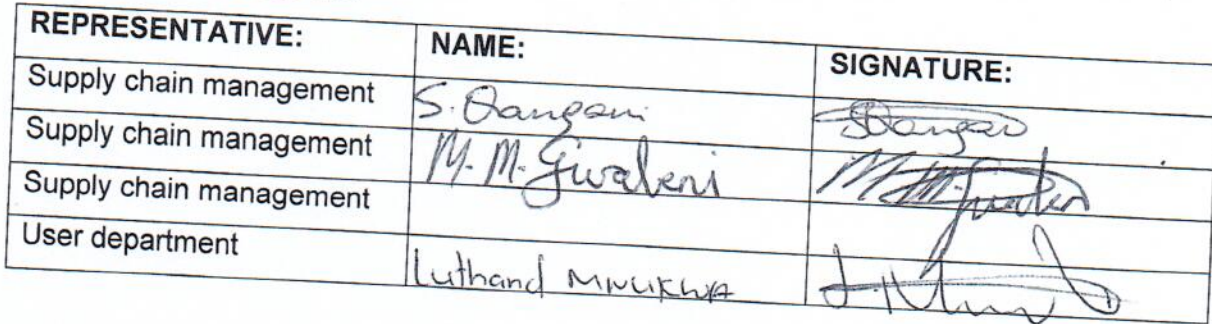 REPRESENTATIVE: NAME: SIGNATURE:
Supply chain management S.
Supply chain management M. M. Gwabeni
Supply chain management
User department Luthand